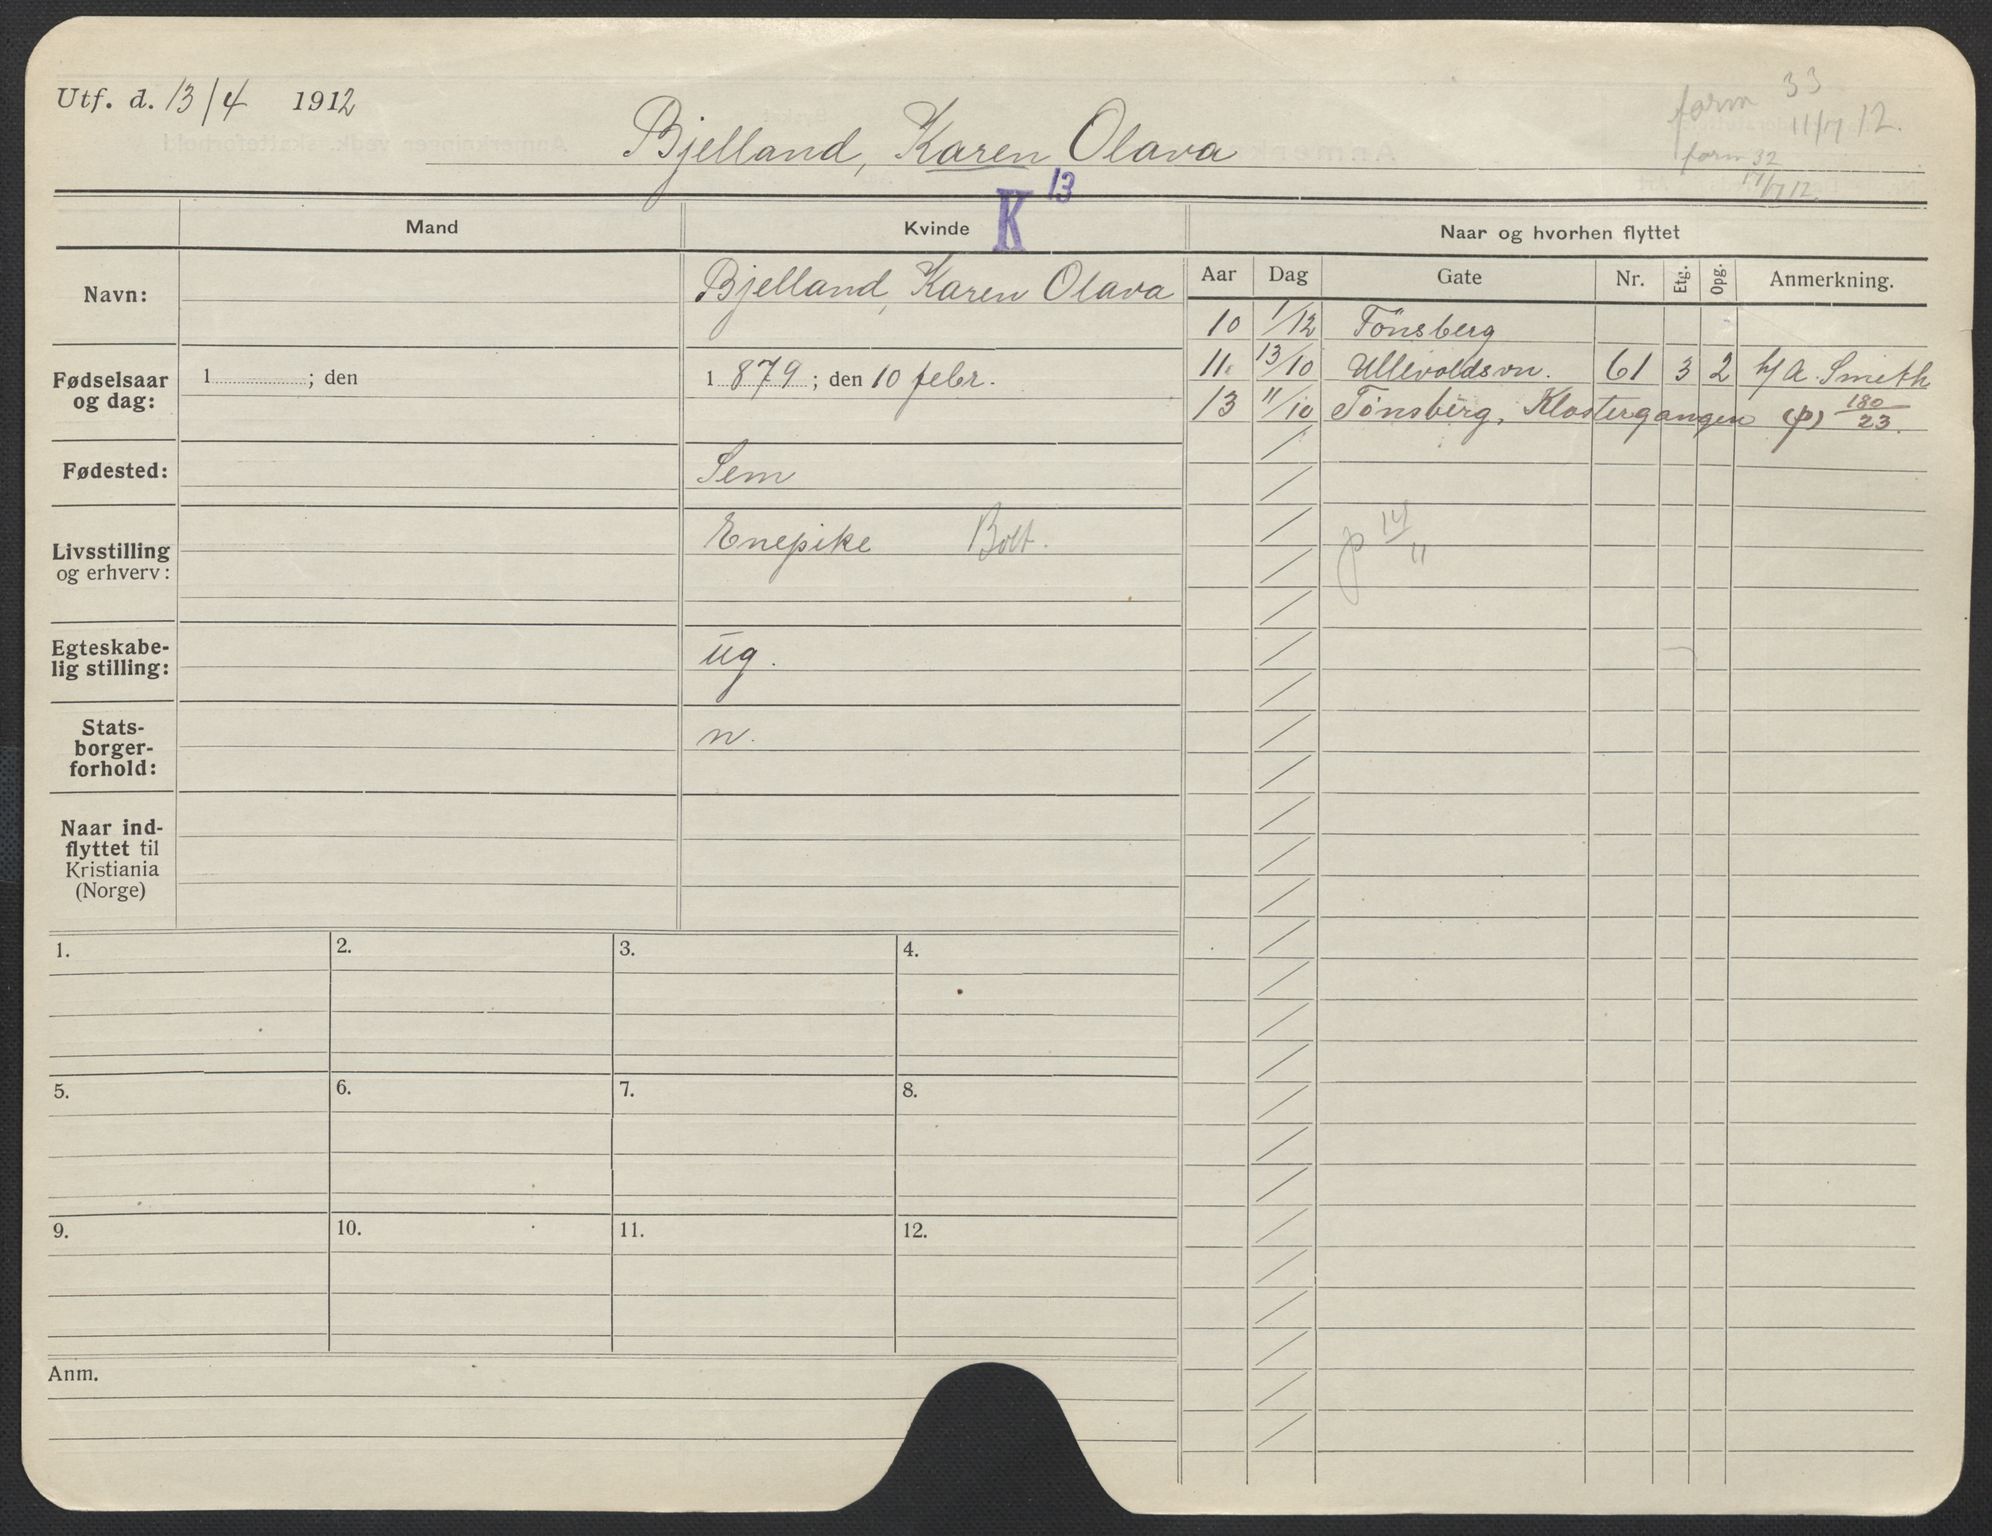 Utf. d. 13/4 1912
form 33
11/7 12.
Bjelland, Karen Olava
form 32
17/7 12.
K 13
Mand
Kvinde
Naar og hvorhen flyttet
Aar Dag Gate Nr. Etg. Opg. Anmerkning.
Navn:
Bjelland, Karen Olava
10 1/12 Tönsberg
11. 13/10 Ullevoldsvn. 61 3 2 h/ A. Smith
13 11/10 Tönsberg, Klostergangen (p) 180/23.
Fødselsaar
og dag:
1 ; den
1 879 ; den 10 febr.
Fødested:
Sem
Livsstilling
og erhverv:
Enepike Bolt.
p 14/11
Egteskabe-
lig stilling:
ug.
Stats-
borger-
forhold:
n.
Naar ind-
flyttet til
Kristiania
(Norge)
1. 2. 3. 4.
5. 6. 7. 8.
9. 10. 11. 12.
Anm.